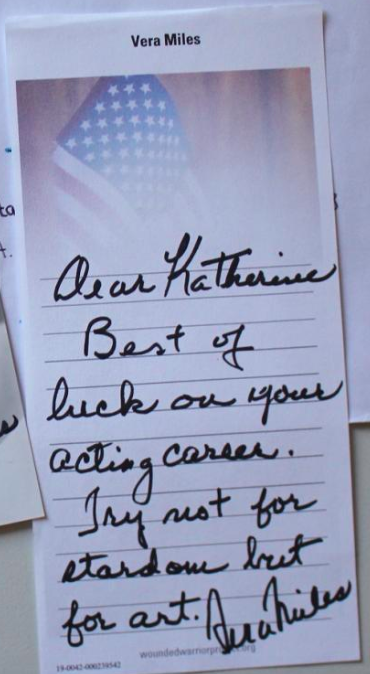 Vera Miles
Dear Katherine
Best of
luck on your
acting career.
Try not for
stardom but
for art. Vera Miles
woundedwarriorproject.org
19-0042-000239542